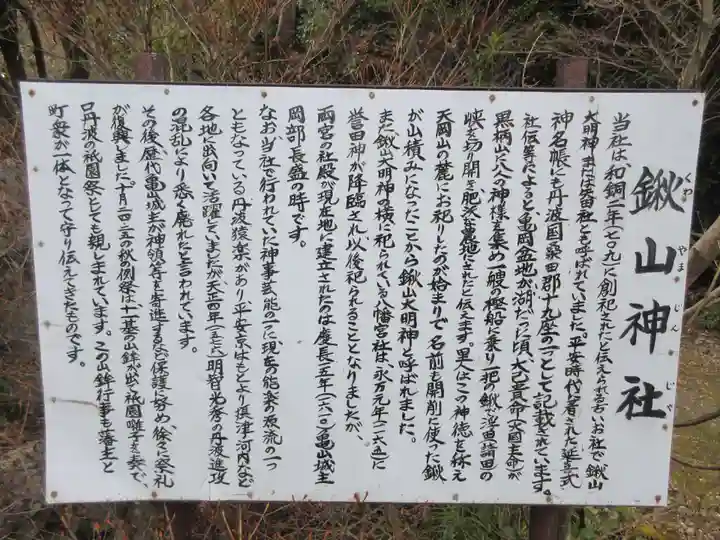 鍬山神社
くわ やま じん じゃ
当社は、和銅二年(七〇九)に創祀されたと伝えられる古いお社で鍬山
大明神、または矢田社とも呼ばれていました。平安時代に著された延喜式
神名帳にも丹波国桑田郡十九座の一つとして記載されています。
社伝等によると、亀岡盆地が湖だった頃、大己貴命(大国主命)が
黒柄山に八人の神様を集め一艘の樫船に乗り一把の鍬で浮田請田の
峡を切り開き肥沃な農地にされたと伝えます。里人はこの神徳を称え
天岡山の麓にお祀りしたのが始まりで、名前も開削に使った鍬
が山積みになったことから鍬山大明神と呼ばれました。
また鍬山大明神の横に祀られている八幡宮社は、永万元年(一一六五)に
誉田神が降臨され以後祀られることとなりましたが、
両宮の社殿が現在地に建立されたのは慶長十五年(一六一〇)亀山城主
岡部長盛の時です。
なお当社で行われていた神事芸能の一つに現在の能楽の源流の一つ
ともなっている丹波猿楽があり平安京はもとより摂津河内など
各地に出向いて活躍していましたが天正四年(一五七六)明智光秀の丹波進攻
の混乱により悉く廃れたと言われています。
その後、歴代亀山城主が神領等を寄進するなど保護に努め、徐々に祭礼
が復興しました。十月二〇〜二五の秋例祭は十一基の山鉾が出て祇園囃子を奏で、
口丹波の祇園祭としても親しまれています。この山鉾行事も藩主と
町衆が一体となって守り伝えてきたものです。